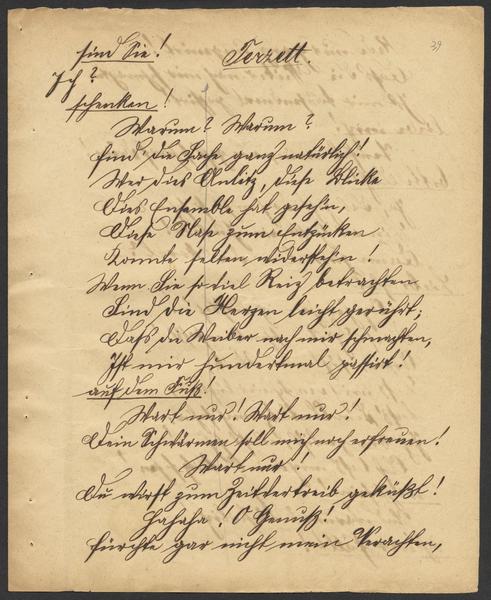 39
sind Sie! Terzett.
Ich?
schenken!
Warum? Warum?
find' die Sache ganz natürlich!
Wer dies Antlitz, diese Blicke
Dies Ensemble hat geseh'n,
Diese Nase zum Entzücken
Konnte selten widersteh'n!
Wenn Sie so viel Reiz betrachten
Sind die Herzen leicht gerührt;
Dass die Weiber nach mir schmachten,
Ist mir hundertmal passirt!
auf dem Fuß!
Wart nur! Wart nur!
Dein Schwärmen soll mich noch erfreuen!
Wart nur!
Du wirst zum Zeitvertreib geküßt!
Hahaha! O Genuß!
fürchte gar nicht mein Verachten,